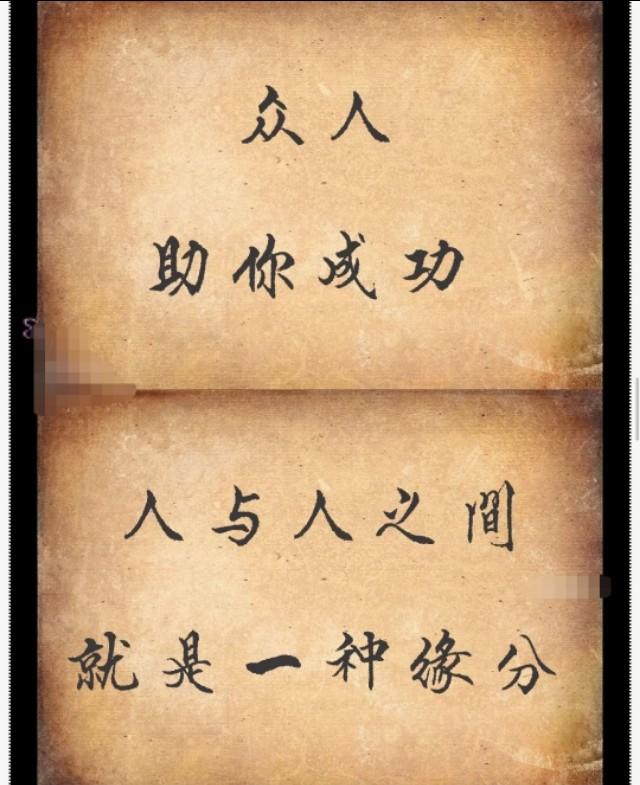 众人
助你成功
人与人之間
就是一种缘分